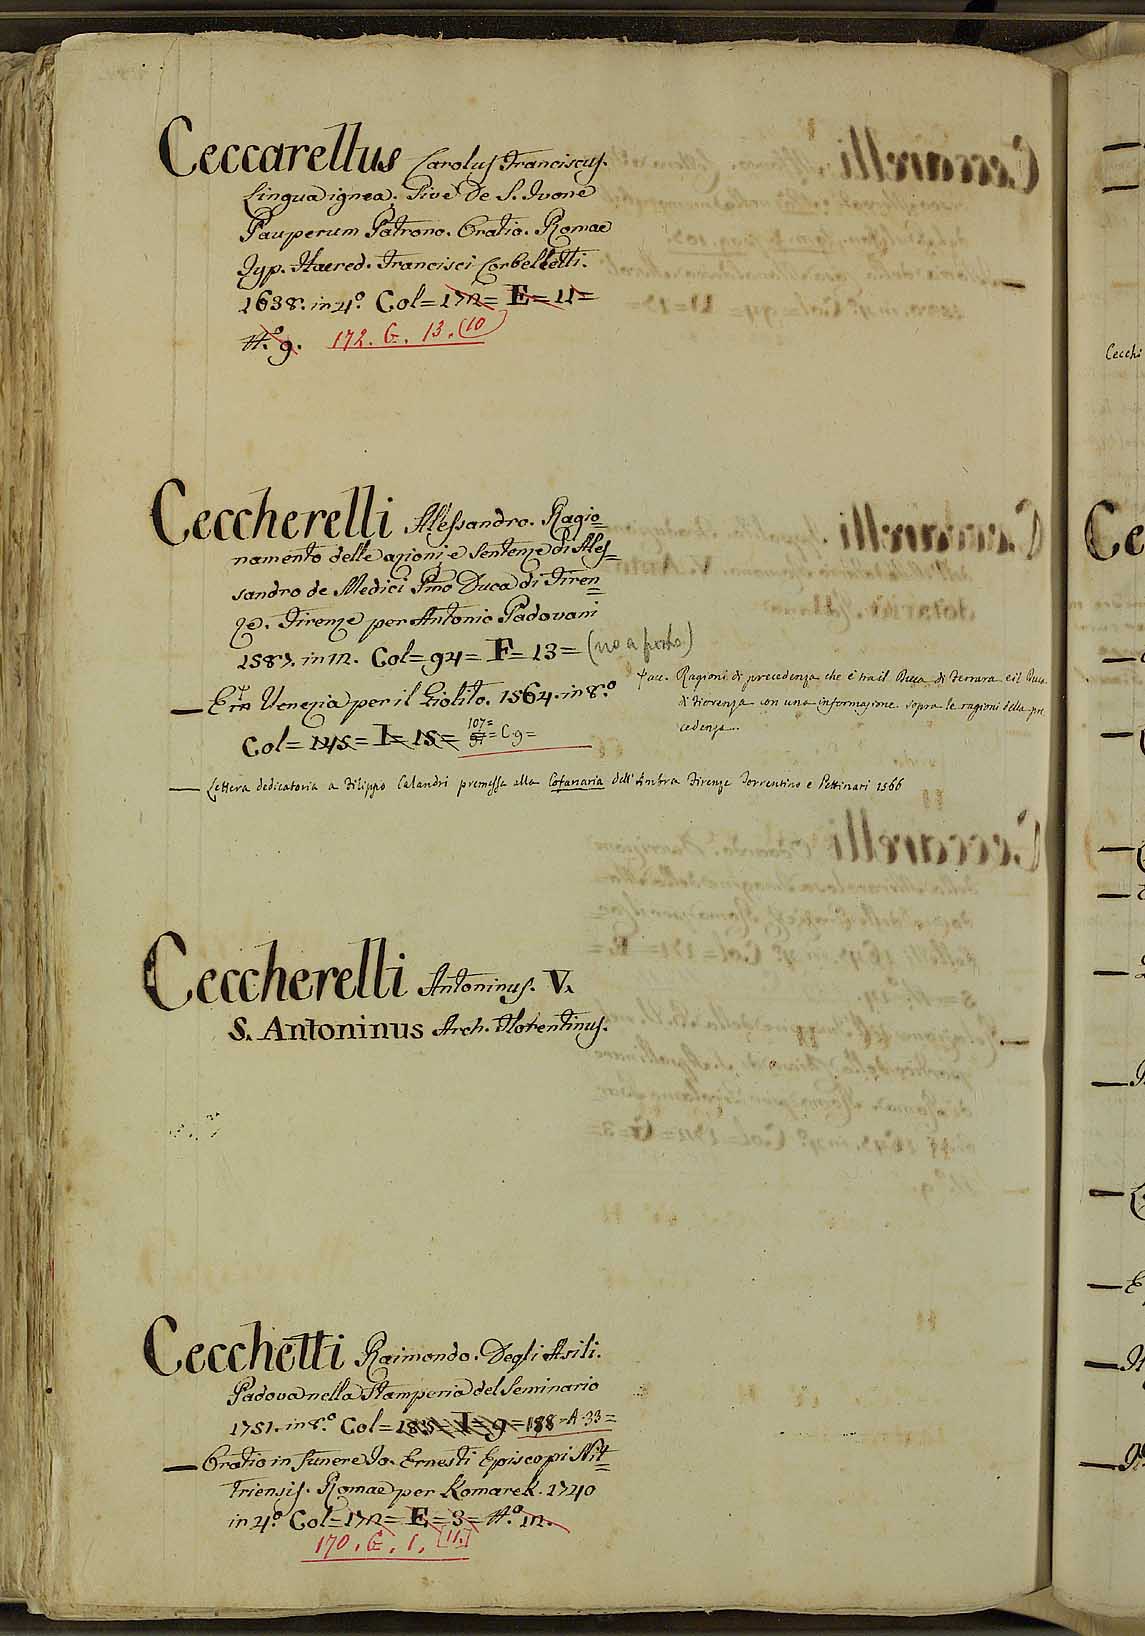 Ceccarellus Carolus Franciscus.
Lingua ignea. Sive De S. Ivone
Pauperum Patrono. Oratio. Romae
Typ. Haered. Francisci Corbelletti.
1638. in 4.º Col= 172= E= 11=
N.º 9. 172. G. 13. (10)
Ceccherelli Alessandro. Ragio=
namento delle azioni e sentenze di Ales=
sandro de Medici Pmo Duca di Firen=
ze. Firenze per Antonio Padovani
1587. in 12. Col= 94= F= 13=
— E in Venezia per il Giolito. 1564. in 8.º
Col= 145= I= 15= 107= C 9=
Ragioni di precedenza che è tra il Duca di Ferrara e il Duca
di Fiorenza con una informazione sopra le ragioni della pre
cedenza.
— Lettera dedicatoria a Filippo Calandri premessa alla Cofanaria dell'Ambra Firenze Torrentino e Pettinari 1566
Ceccherelli Antoninus. V.
S. Antoninus Arch. Florentinus.
Cecchetti Raimondo. Degli Asili.
Padova nella Stamperia del Seminario
1751. in 8.º Col= 183= I= 9= 188-A-33=
— Oratio in funere Jo. Ernesti Episcopi Nit=
triensis. Romae per Komarek. 1740
in 4.º Col= 172= E= 3= N.º 12.
170. G. 1. [11.]
Cecchi
Ce